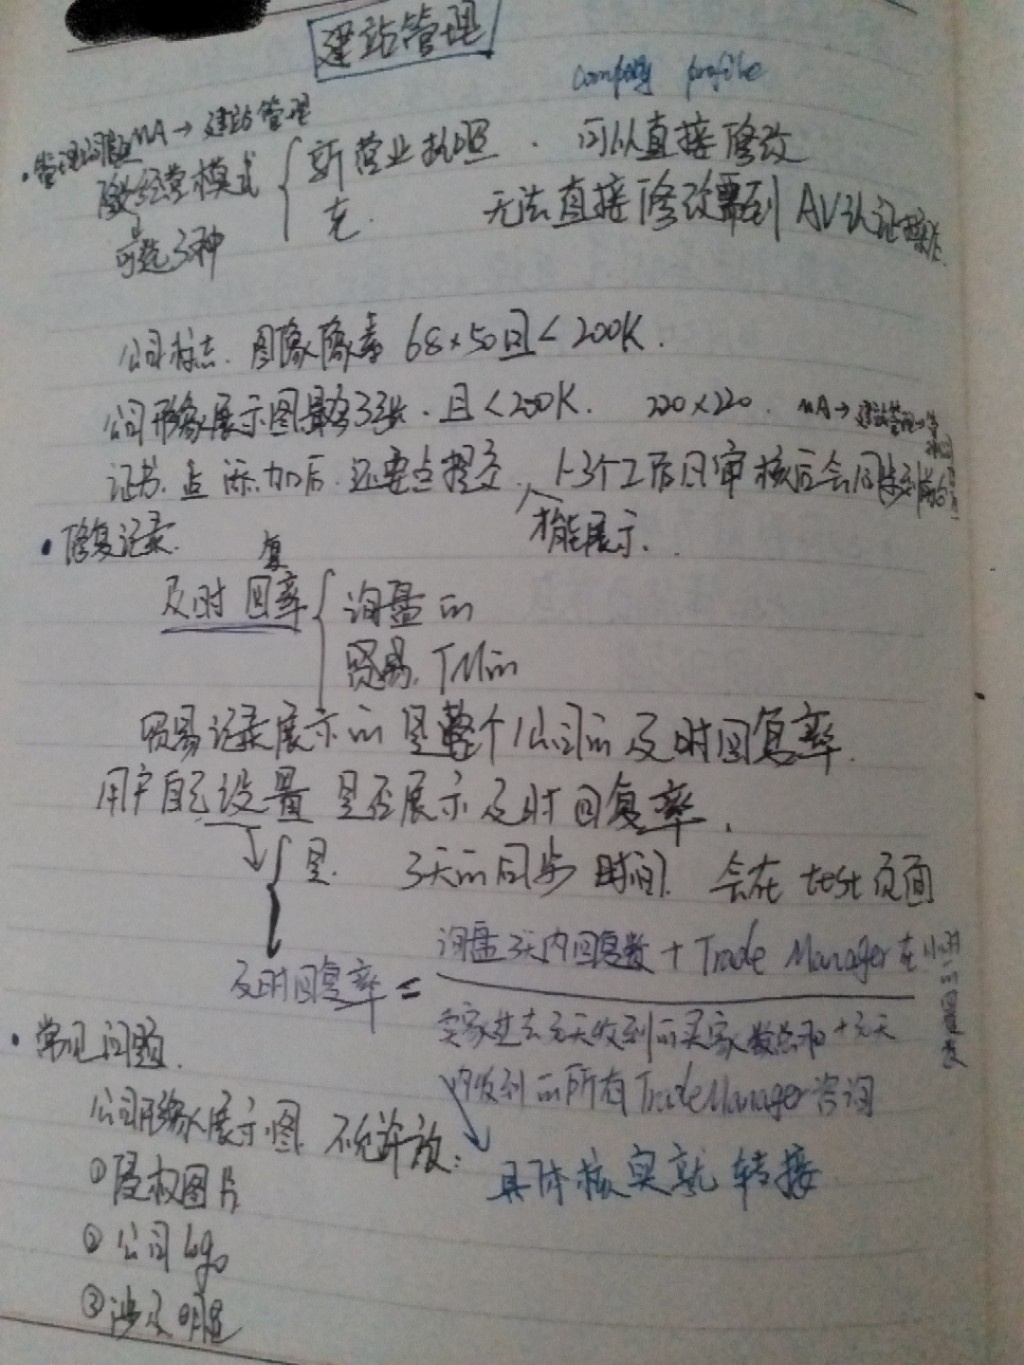 建站管理
company profile
·管理公司信息 MA→建站管理
经营模式 { 新营业执照. 可以直接修改
无. 无法直接修改需到AV认证操作.
可选3种
公司标志. 图像像素 68×50且<200K.
公司形象展示图最多3张. 且<200K. 220×220. MA→建站管理→管
证书. 点添加后. 还要点提交, 1-3个工作日审核后会同步到前台
才能展示.
·修复记录.
及时回复率 { 询盘的
贸易. TM的
贸易记录展示的是整个公司的及时回复率.
用户自己设置是否展示及时回复率.
↓ { 是. 3天的同步时间. 会在test页面
及时回复率 = 询盘3天内回复数 + Trade Manager在1小时的回复
卖家过去30天收到的买家数总和+30天
内收到的所有TradeManager咨询
·常见问题.
公司形象展示图. 不允许放:
具体核实就转接
①侵权图片
②公司logo
③涉及明星